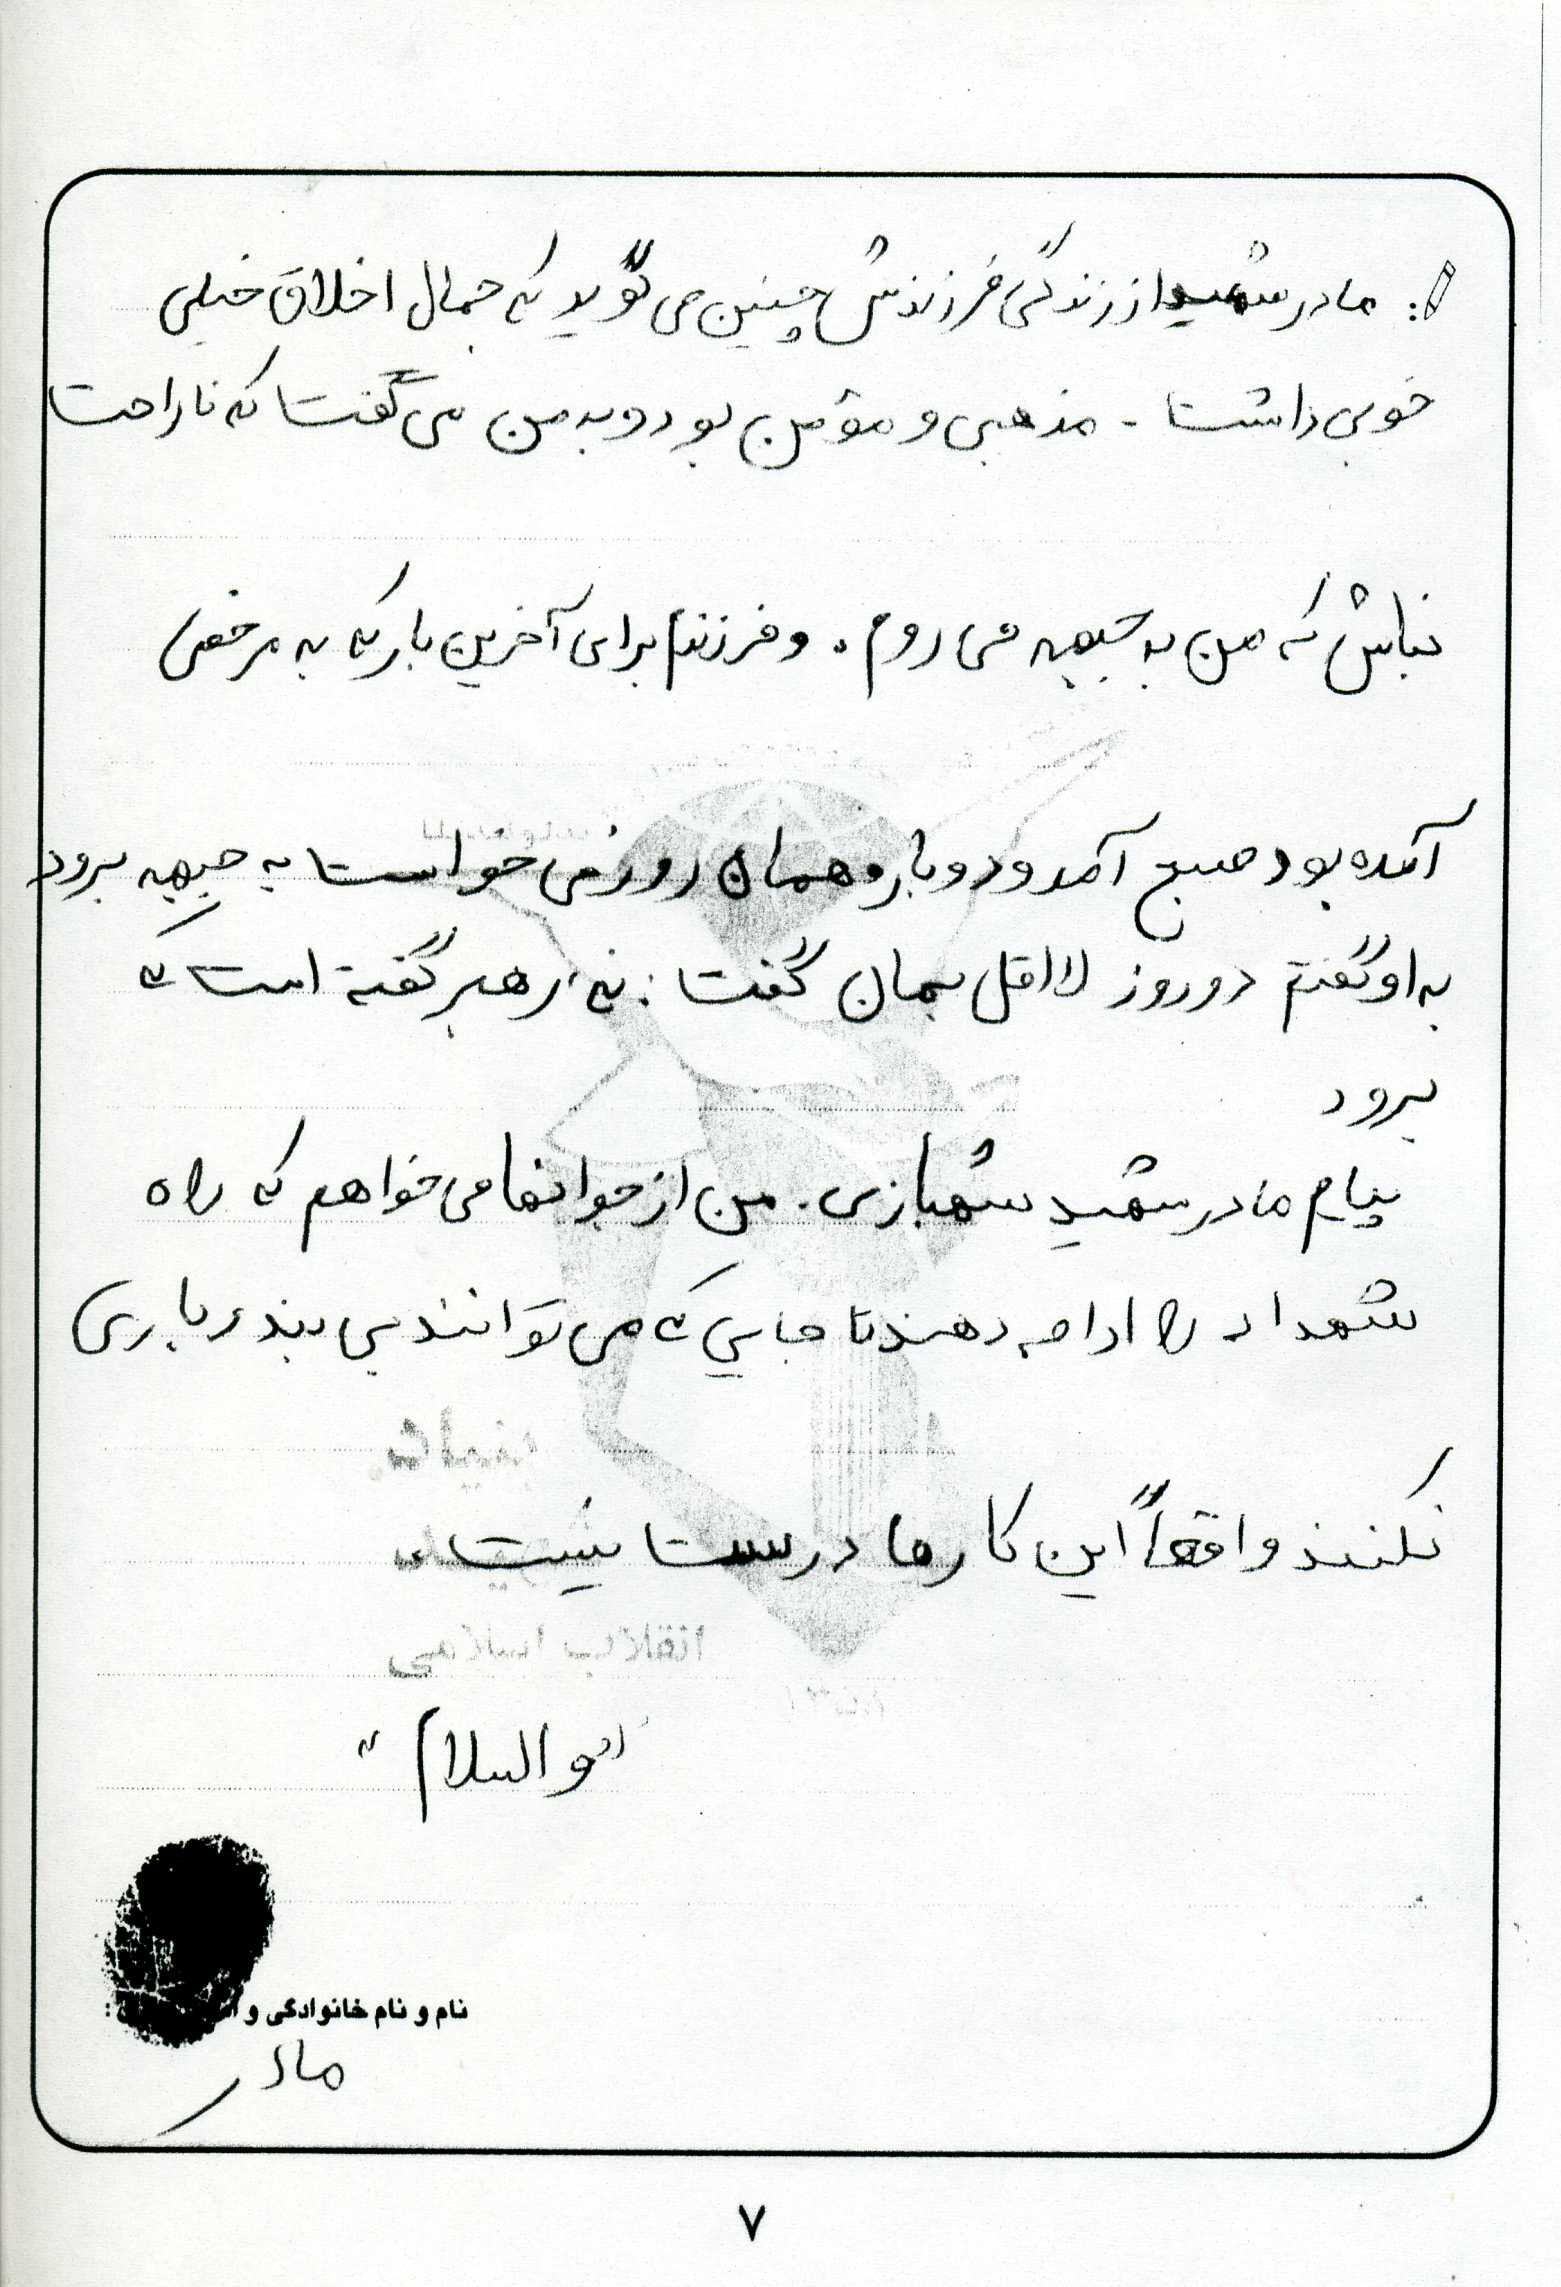 : مادر شهید از زندگی فرزندش چنین می گوید که جمال اخلاق خیلی
خوبی داشت - مذهبی و مؤمن بود و به من می گفت که ناراحت
نباش که من به جبهه می روم. و فرزندم برای آخرین بار که به مرخصی
آمده بود صبح آمد و دوباره همان روز می خواست به جبهه برود
به او گفتم دو روز لااقل بمان گفت: نه رهبر گفته است که
برود
پیام مادر شهید شهبازی. من از جوانها می خواهم که راه
شهدا را ادامه دهند تا جایی که می توانند بی بند و باری
نکنند واقعاً این کارها درست نیست
بنیاد
شهید
انقلاب اسلامی
"والسلام"
نام و نام خانوادگی و :
مادر
۷